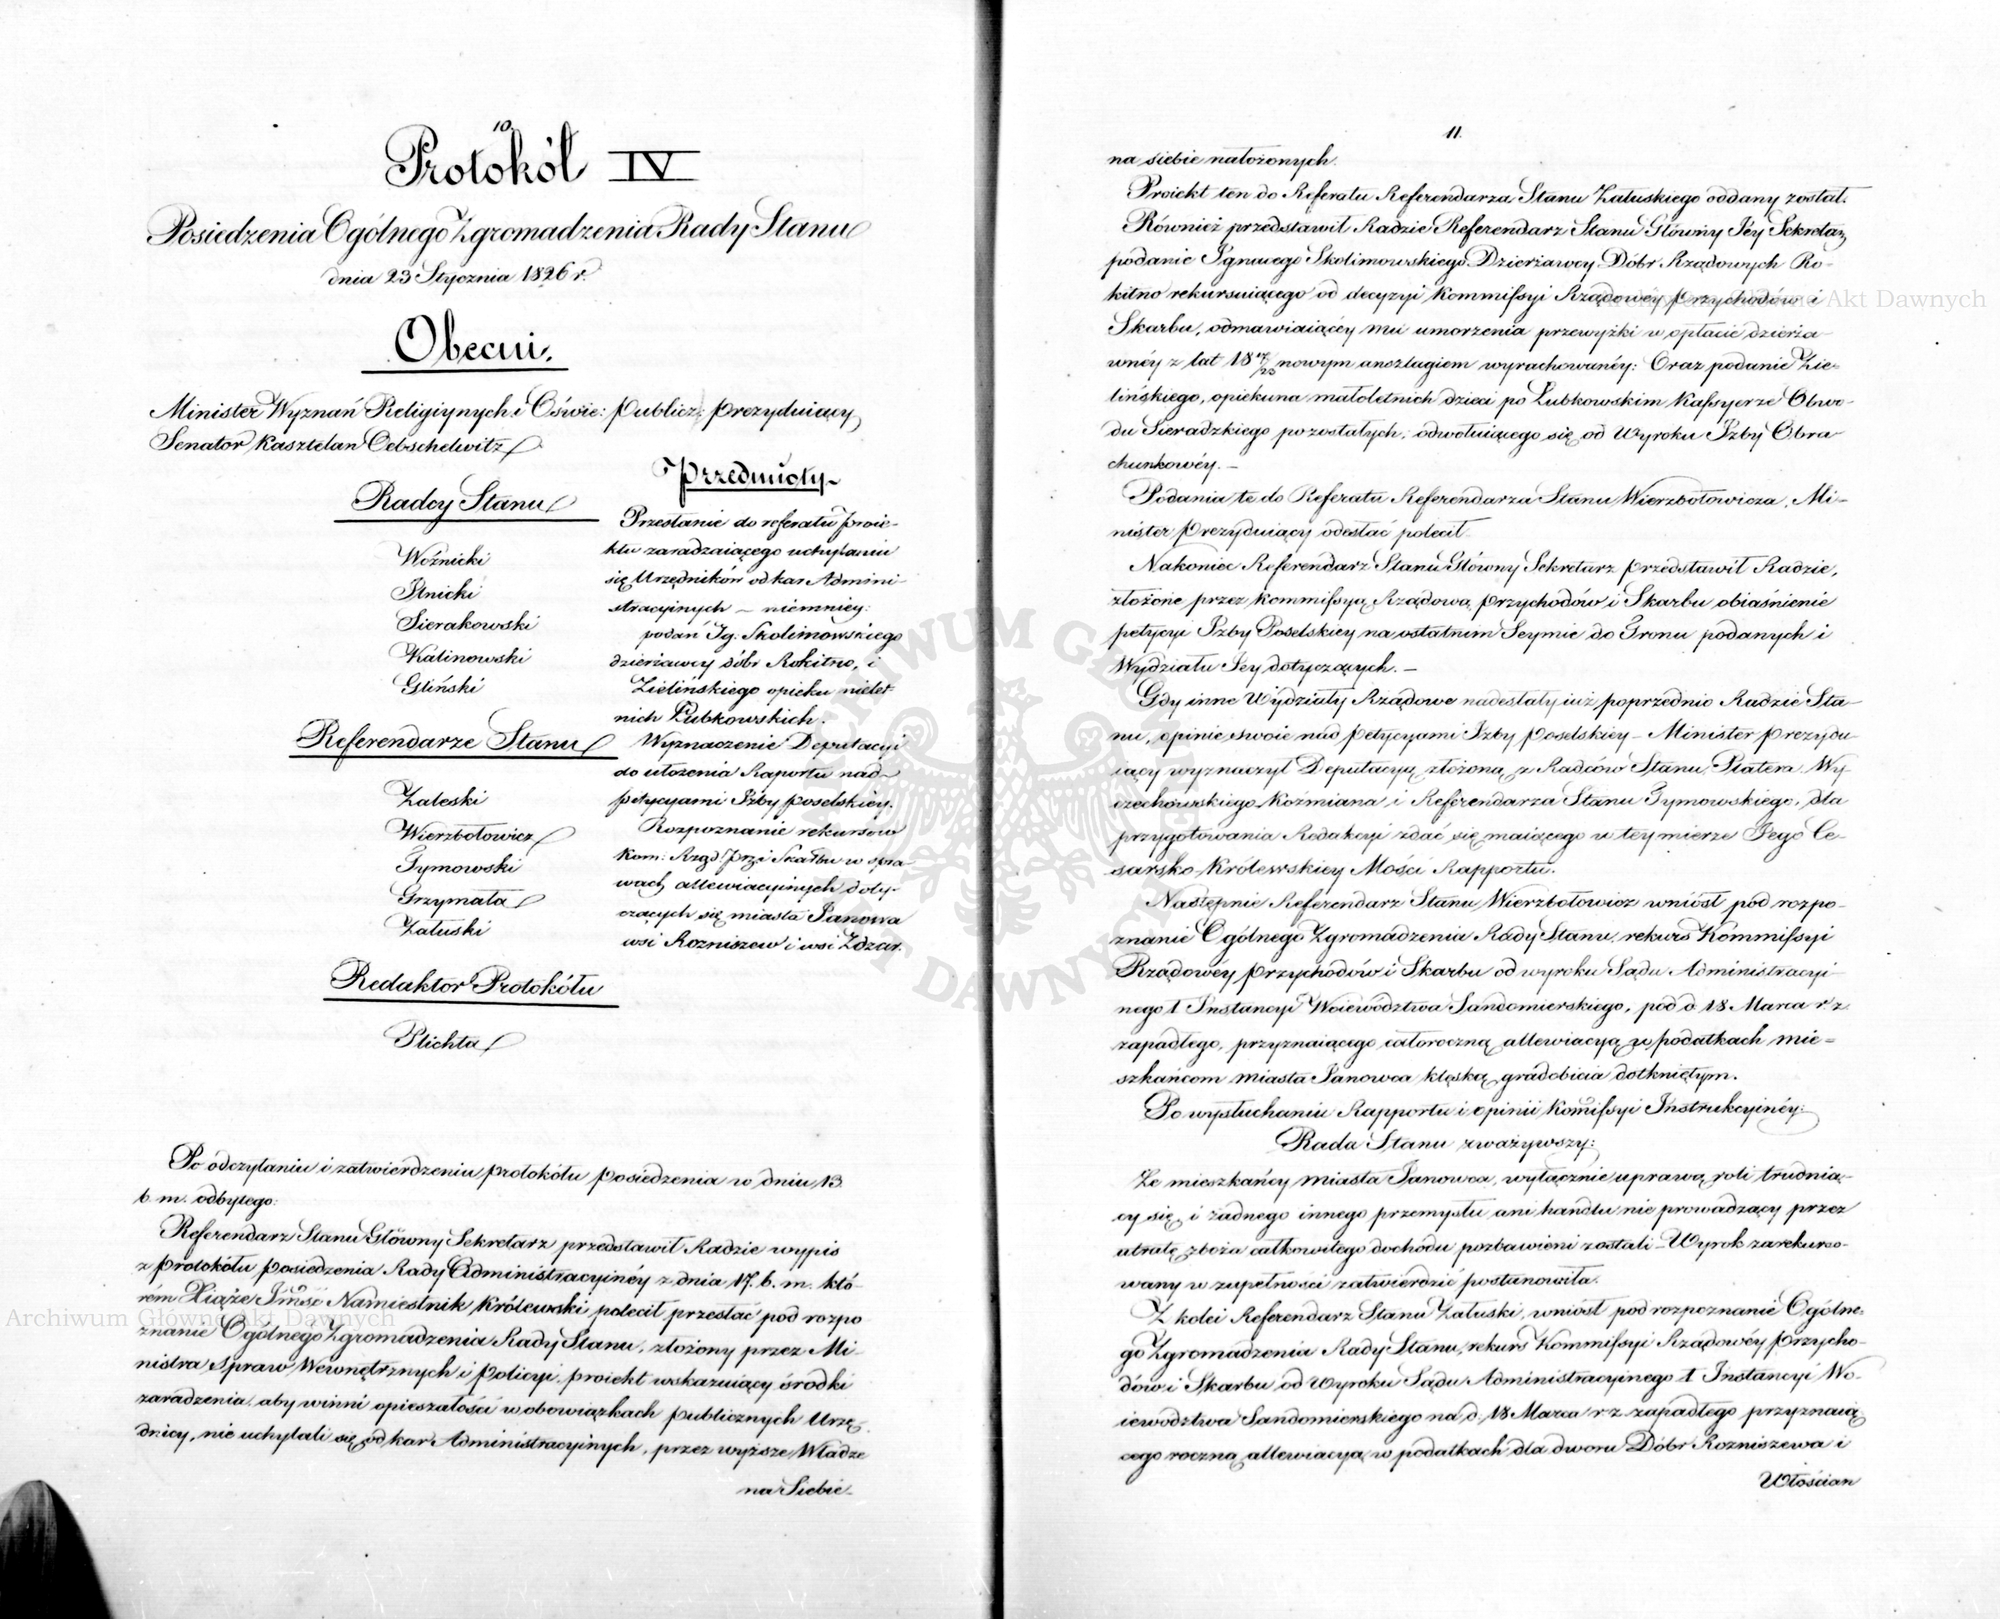 10.
Protokół IV
Posiedzenia Ogólnego Zgromadzenia Rady Stanu
dnia 23 Stycznia 1826 r.
Obecni.
Minister Wyznań Religiynych i Oświe: Public: prezyduiący
Senator Kasztelan Oebschelwitz
Radcy Stanu
Woźnicki
Ilnicki
Sierakowski
Kalinowski
Gliński
Referendarze Stanu
Zaleski
Wierzbołowicz
Tymowski
Grzymała
Załuski
Redaktor Protokółu
Plichta
Przedmioty
Przesłanie do referatu proie-
ktu zaradzaiącego uchylaniu
się Urzędników od kar Admini
stracyinych – niemniey:
podań Ig: Skolimowskiego
dzierżawcy dóbr Rokitno, i
Zielińskiego opieku nielet-
nich Łubkowskich.
Wyznaczenie Deputacyi
do ułożenia Raportu nad
petycyami Izby poselskiéy.
Rozpoznanie rekursów
Kom: Rząd: Prz: i Skarbu w spra-
wach allewiacyinych doty-
czących się miasta Janowca
wsi Rozniszew i wsi Zdżar.
Po odczytaniu i zatwierdzeniu protokółu posiedzenia w dniu 13
b. m. odbytego:
Referendarz Stanu Główny Sekretarz przedstawił Radzie wypis
z protokółu posiedzenia Rady Administracyinéy z dnia 17. b. m. któ-
rém Xiąże Jmść Namiestnik Królewski polecił przesłać pod rozpo
znanie Ogólnego Zgromadzenia Rady Stanu, złożony przez Mi-
nistra spraw Wewnętrznych i policyi proiekt wskazuiący środki
zaradzenia aby winni opieszałości w obowiązkach publicznych Urzę-
dnicy, nie uchylali się od kar Administracyinych, przez wyższe Władze
na Siebie
11.
na siebie nałożonych.
Proiekt ten do Referatu Referendarza Stanu Załuskiego oddany został.
Również przedstawił Radzie Referendarz Stanu Główny Jéy Sekretarz
podanie Ignacego Skolimowskiego Dzierżawcy Dóbr Rządowych Ro-
kitno rekursuiącego od decyzyi Kommissyi Rządowéy przychodów i
Skarbu, odmawiaiącéy mu umorzenia przewyżki w opłacie dzierża
wnéy z lat 18 17/23 nowym anszlagiem wyrachowanéy: Oraz podanie Zie-
lińskiego, opiekuna małoletnich dzieci po Łubkowskim Kassyerze Obwo-
du Sieradzkiego pozostałych, odwołuiącego się od Wyroku Izby Obra
chunkowéy. –
Podania te do Referatu Referendarza Stanu Wierzbołowicza, Mi-
nister prezyduiący odesłać polecił.
Nakoniec Referendarz Stanu Główny Sekretarz przedstawił Radzie,
złożone przez Kommissyą Rządową przychodów i Skarbu obiaśnienie
petycyi Izby Poselskiey na ostatnim Seymie do Tronu podanych i
Wydziału Jey dotyczących. –
Gdy inne Wydziały Rządowe nadesłały iuż poprzednio Radzie Sta-
nu, opinie swoie nad petycyami Izby poselskiey – Minister prezydu-
iący wyznaczył Deputacyą złożoną z Radców Stanu, Platera Wy-
czechowskiego Koźmiana i Referendarza Stanu Tymowskiego, dla
przygotowania Redakcyi zdać się maiącego w tey mierze Jego Ce-
sarsko Królewskiey Mości Rapportu.
Następnie Referendarz Stanu Wierzbołowicz wniósł pod rozpo-
znanie Ogólnego Zgromadzenia Rady Stanu, rekurs Kommissyi
Rządowéy przychodów i Skarbu od wyroku Sądu Administracyi-
nego 1 Instancyi Woiewództwa Sandomierskiego, pod d 18 Marca r. z.
zapadłego, przyznaiącego całoroczną allewiacyą w podatkach mie-
szkańcom miasta Janowca klęską gradobicia dotkniętym.
Po wysłuchaniu Rapportu i opinii Komissyi Instrukcyinéy:
Rada Stanu zważywszy:
Że mieszkańcy miasta Janowca, wyłącznie uprawą roli trudnią-
cy się i żadnego innego przemysłu ani handlu nie prowadzący przez
utratę zboża całkowitego dochodu pozbawieni zostali – Wyrok zarekurso-
wany w zupełności zatwierdzić postanowiła.
Z kolei Referendarz Stanu Załuski, wniósł pod rozpoznanie Ogólne-
go Zgromadzenia Rady Stanu, rekurs Kommissyi Rządowéy Przycho-
dów i Skarbu od Wyroku Sądu Administracyinego 1 Instancyi Wo-
iewództwa Sandomierskiego na d. 18 Marca r. z. zapadłego przyznaią
cego roczną allewiacyą w podatkach dla dworu Dóbr Rozniszewa i
Włościan
Archiwum Główne Akt Dawnych
Archiwum Główne Akt Dawnych
ARCHIWUM GŁÓWNE AKT DAWNYCH